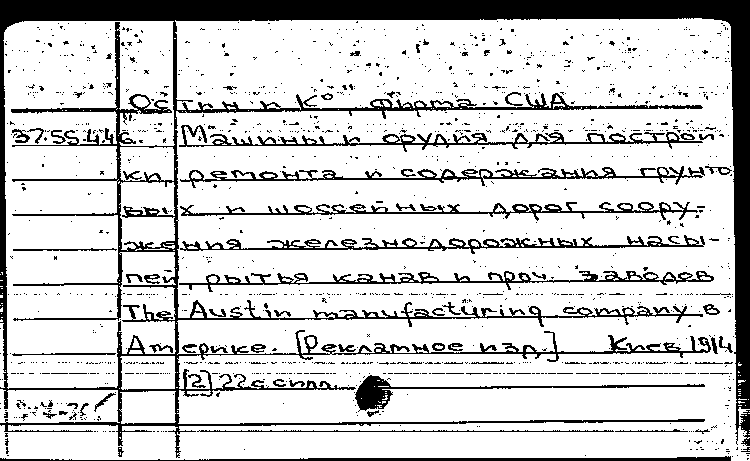 "Остин и К°", фирма. США
37.55.44с. Машины и орудия для построй-
ки, ремонта и содержания грунто
вых и шоссейных дорог, соору-
жения железно-дорожных насы-
пей, рытья канав и проч. заводов
The Austin manufacturing company в
Америке. [Рекламное изд.] Киев, 1914
[2], 22 с. с илл.